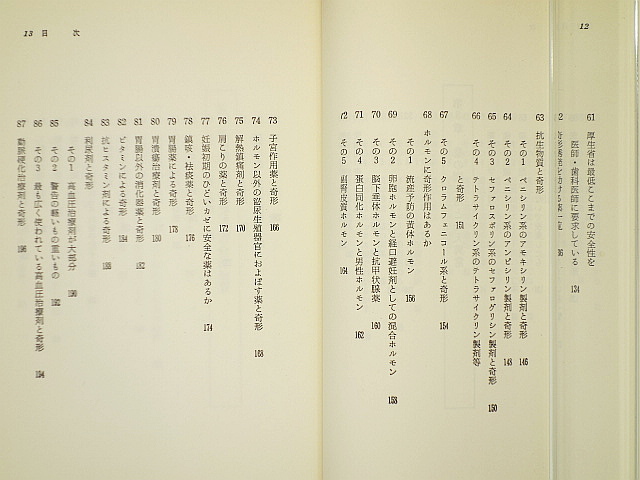 12
61 厚生省は最低ここまでの安全性を
医師・歯科医師に要求している 134
63 抗生物質と奇形
64 その1 ペニシリン系のアモキシリン製剤と奇形 146
その2 ペニシリン系のアンピシリン製剤と奇形 148
65 その3 セファロスポリン系のセファログリシン製剤と奇形 150
66 その4 テトラサイクリン系のテトラサイクリン製剤等
と奇形 151
67 その5 クロラムフェニコール系と奇形 154
68 ホルモンに奇形作用はあるか
その1 流産予防の黄体ホルモン 156
69 その2 卵胞ホルモンと経口避妊剤としての混合ホルモン 158
70 その3 脳下垂体ホルモンと抗甲状腺薬 160
71 その4 蛋白同化ホルモンと男性ホルモン 162
72 その5 副腎皮質ホルモン 164
13 目 次
73 子宮作用薬と奇形 166
74 ホルモン以外の泌尿生殖器官におよぼす薬と奇形 168
75 解熱鎮痛剤と奇形 170
76 肩こりの薬と奇形 172
77 妊娠初期のひどいカゼに安全な薬はあるか 174
78 鎮咳・袪痰薬と奇形 176
79 胃腸薬による奇形 178
80 胃潰瘍治療剤と奇形 180
81 胃腸以外の消化器薬と奇形 182
82 ビタミンによる奇形 184
83 抗ヒスタミン剤による奇形 188
84 利尿剤と奇形
その1 高血圧治療剤が大部分 190
85 その2 警告の軽いもの重いもの 192
86 その3 最も広く使われている高血圧治療剤と奇形 194
87 動脈硬化治療剤と奇形 196